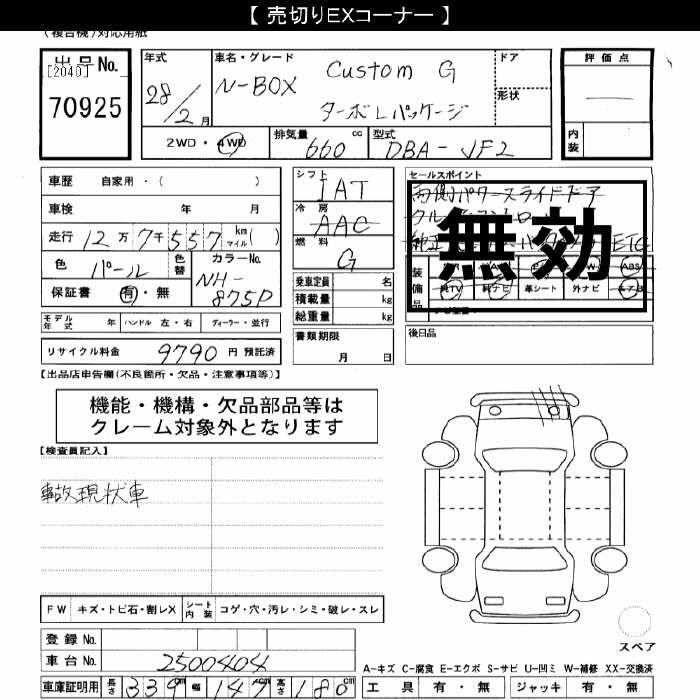 【 売切りEXコーナー 】
(複合機)対応用紙
出品No.
[2040]
70925
年式
28/2月
車名・グレード
N-BOX Custom G
ターボLパッケージ
ドア
形状
評価点
内装
2WD・4WD
排気量 660 cc
型式 DBA-JF2
車歴 自家用・( )
車検 年 月
走行 12万7千557 km マイル( )
色 パール
色替
カラーNo. NH-875P
保証書 有・無
モデル年式 年 ハンドル 左・右 ディーラー・並行
リサイクル料金 9790 円 預託済
シフト IAT
冷房 AAC
燃料 G
乗車定員 名
積載量 kg
総重量 kg
書類期限
月 日
セールスポイント
両側パワースライドドア
無効
ETC
装備品
ABS
純TV 純ナビ 革シート 外ナビ
後日品
【出品店申告欄(不良箇所・欠品・注意事項等)】
機能・機構・欠品部品等は
クレーム対象外となります
【検査員記入】
事故現状車
FW キズ・トビ石・割レX シート内装 コゲ・穴・汚レ・シミ・破レ・スレ
登録No.
車台No. 2500404
車庫証明用 長さ 339cm 幅 147cm 高さ 180cm
スペア
A-キズ C-腐食 E-エクボ S-サビ U-凹ミ W-補修 XX-交換済
工具 有・無 ジャッキ 有・無